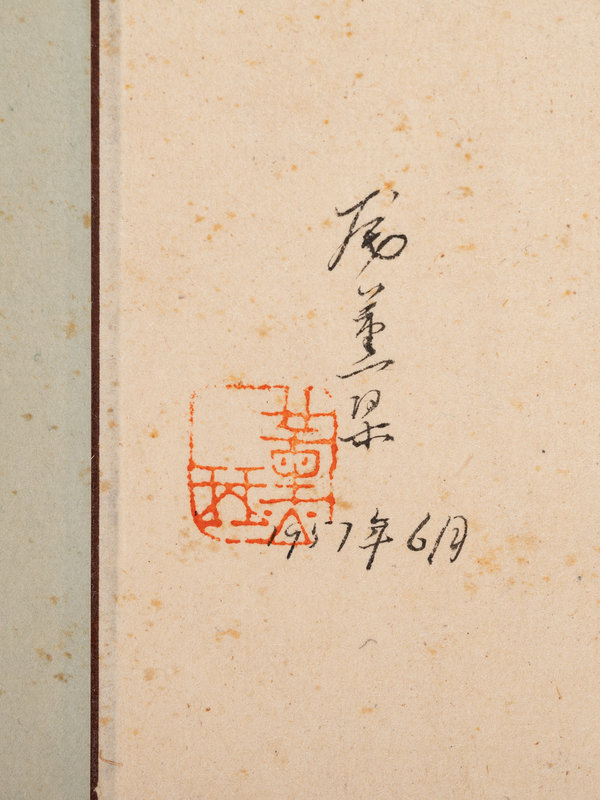 庞薰琹
1957年6月
薰